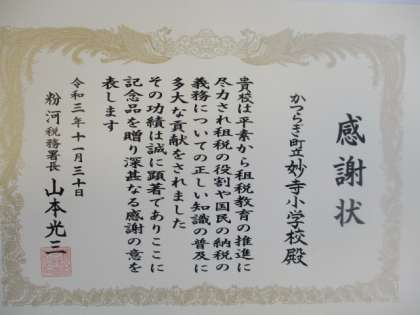 感謝状
かつらぎ町立妙寺小学校殿
貴校は平素から租税教育の推進に
尽力され租税の役割や国民の納税の
義務についての正しい知識の普及に
多大な貢献をされました
その功績は誠に顕著でありここに
記念品を贈り深甚なる感謝の意を
表します
令和三年十一月三十日
粉河税務署長 山本光三